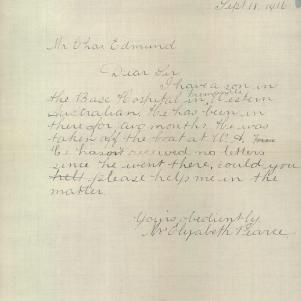 Sept 18. 1916
Mr Chas Edmund
Dear Sir
I have a son in
the Base Hospital in Western
Australian. He has been in
there for two months. He was
taken off the boat at W. A.
he hasn't received no letters
since he went there, could you
please help me in the
matter.
Yours obediently
Mrs Elizabeth Pearce